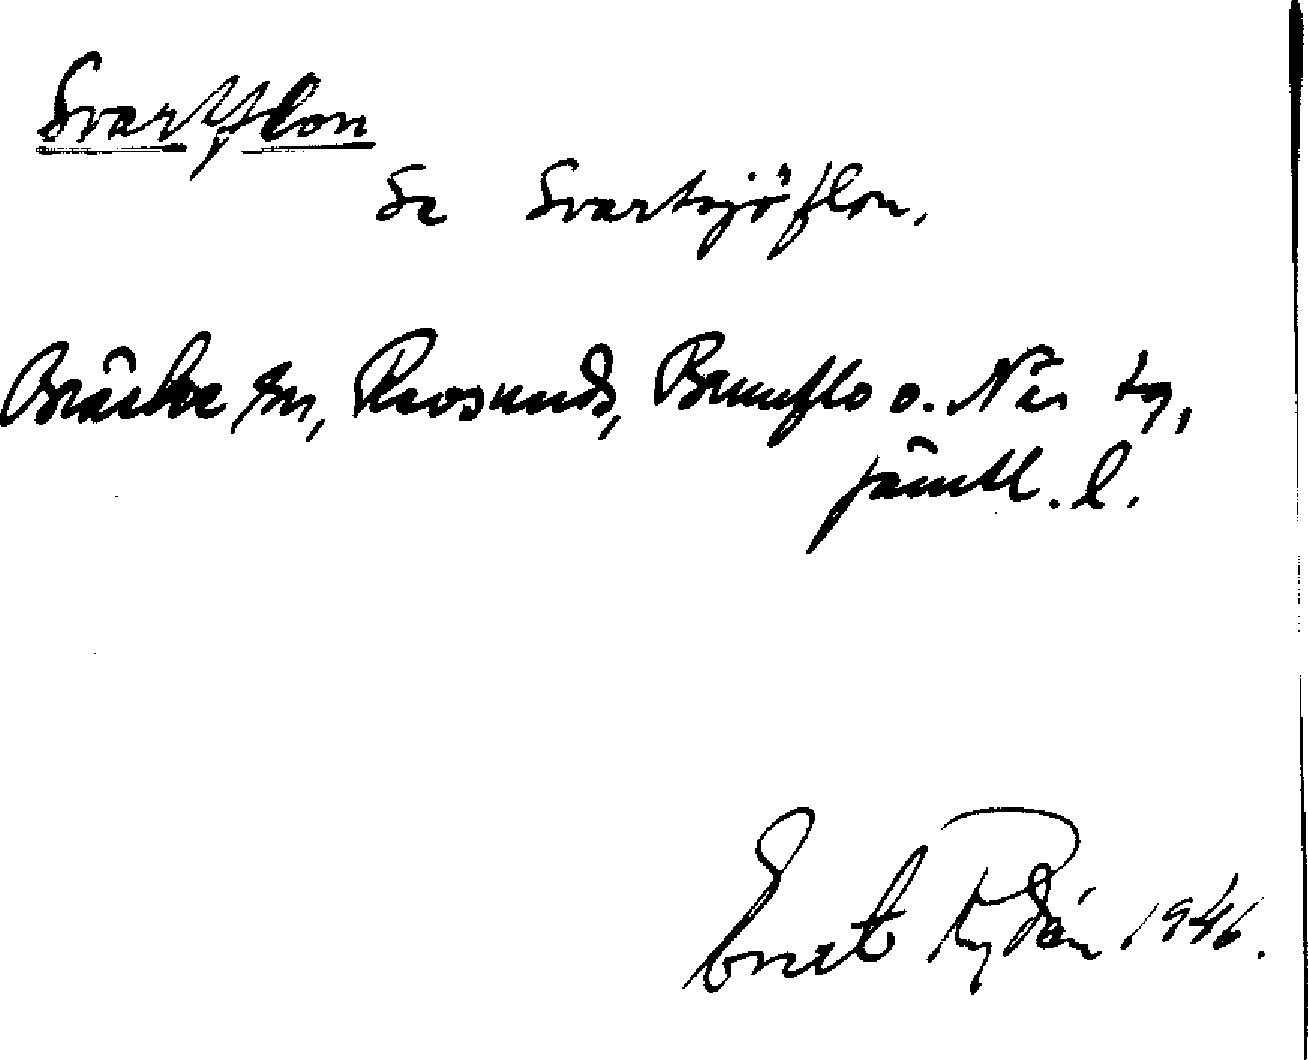 Svartflon
Se Svartsjöflon.
Bräcke sn, Revsunds, Brunflo o. Näs tg,
Jämtl. l.
Evert Rydén 1946.